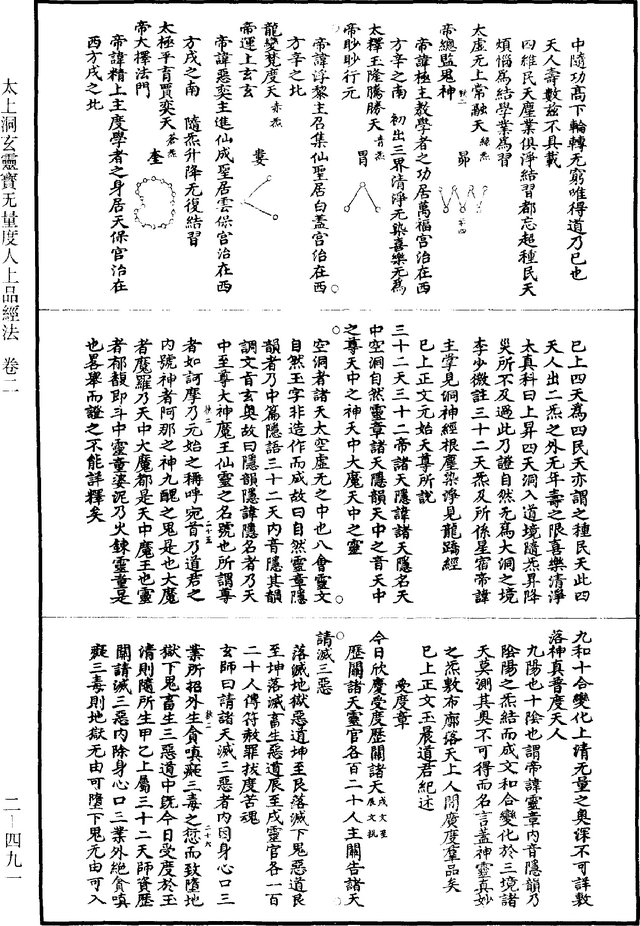 中隨功高下輪轉无窮唯得道乃已也
天人壽數兹不具載
四維民天塵業俱淨結習都忘超種民天
煩惱為結學業為習
太虛无上常融天 綠炁 昴
帝總監鬼神
帝諱極主教學者之功居萬福宮治在西
方辛之南 初出三界清淨无染喜樂无為
太釋玉隆騰勝天 青炁 胃
帝眇眇行元
帝諱浮黎主召集仙聖居白蓋宮治在西
方辛之北
龍變梵度天 赤炁 婁
帝運上玄玄
帝諱惡奕主進仙成聖居雲保宮治在西
方戌之南 隨炁升降无復結習
太極平育賈奕天 蒼炁 奎
帝大擇法門
帝諱精上主度學者之身居天保宮治在
西方戌之北
已上四天為四民天亦謂之種民天此四
天人出二炁之外无年壽之限喜樂清淨
太真科曰上昇四天洞入道境隨炁昇降
災所不及過此乃證自然无為大洞之境
李少微註三十二天炁及所係星宿帝諱
主掌見洞神經根塵染淨見龍蹻經
已上正文元始天尊所說
三十二天三十二帝諸天隱諱諸天隱名天
中空洞自然靈章諸天隱韻天中之音天中
之尊天中之神天中大魔天中之靈
空洞者諸天太空虛无之中也八會靈文
自然玉字非造作而成故曰自然靈章隱
韻者乃中篇隱語三十二天內音隱其韻
調文肯玄奧故曰隱韻隱諱隱名者乃天
中至尊大神魔王仙靈之名號也所謂尊
者如訶摩乃元始之稱呼宛首乃道君之
內號神者阿那之神九醜之鬼是也大魔
者魔羅乃天中大魔都是天中魔王也靈
者郁馥即斗中靈童婆泥乃火鍊靈童是
也畧舉而證之不能詳釋矣
九和十合變化上清无量之奧深不可詳數
落神真普度天人
九陽也十陰也謂帝諱靈章內音隱韻乃
陰陽之炁結而成文和合變化於三境諸
天莫測其奧不可得而名言蓋神靈真妙
之炁敷布廓落天上人間廣度羣品矣
已上正文玉晨道君紀述
受度章
今日欣慶受度歷關諸天
歷關諸天靈官各百二十人主關告諸天
請滅三惡
落滅地獄惡道坤至艮落滅下鬼惡道艮
至坤落滅畜生惡道辰至戌靈官各一百
二十人傳符赦罪拔度苦魂
玄師曰請諸天滅三惡者內因身心口三
業所招外生貪嗔癡三毒之愆而致墮地
獄下鬼畜生三惡道中旣今日受度於玉
清則隨所生甲乙上屬三十二天師資歷
關請滅三惡內除身心口三業外絕貪嗔
癡三毒則地獄无由可墮下鬼无由可入
太上洞玄靈寶无量度人上品經法 卷二
二—四九一